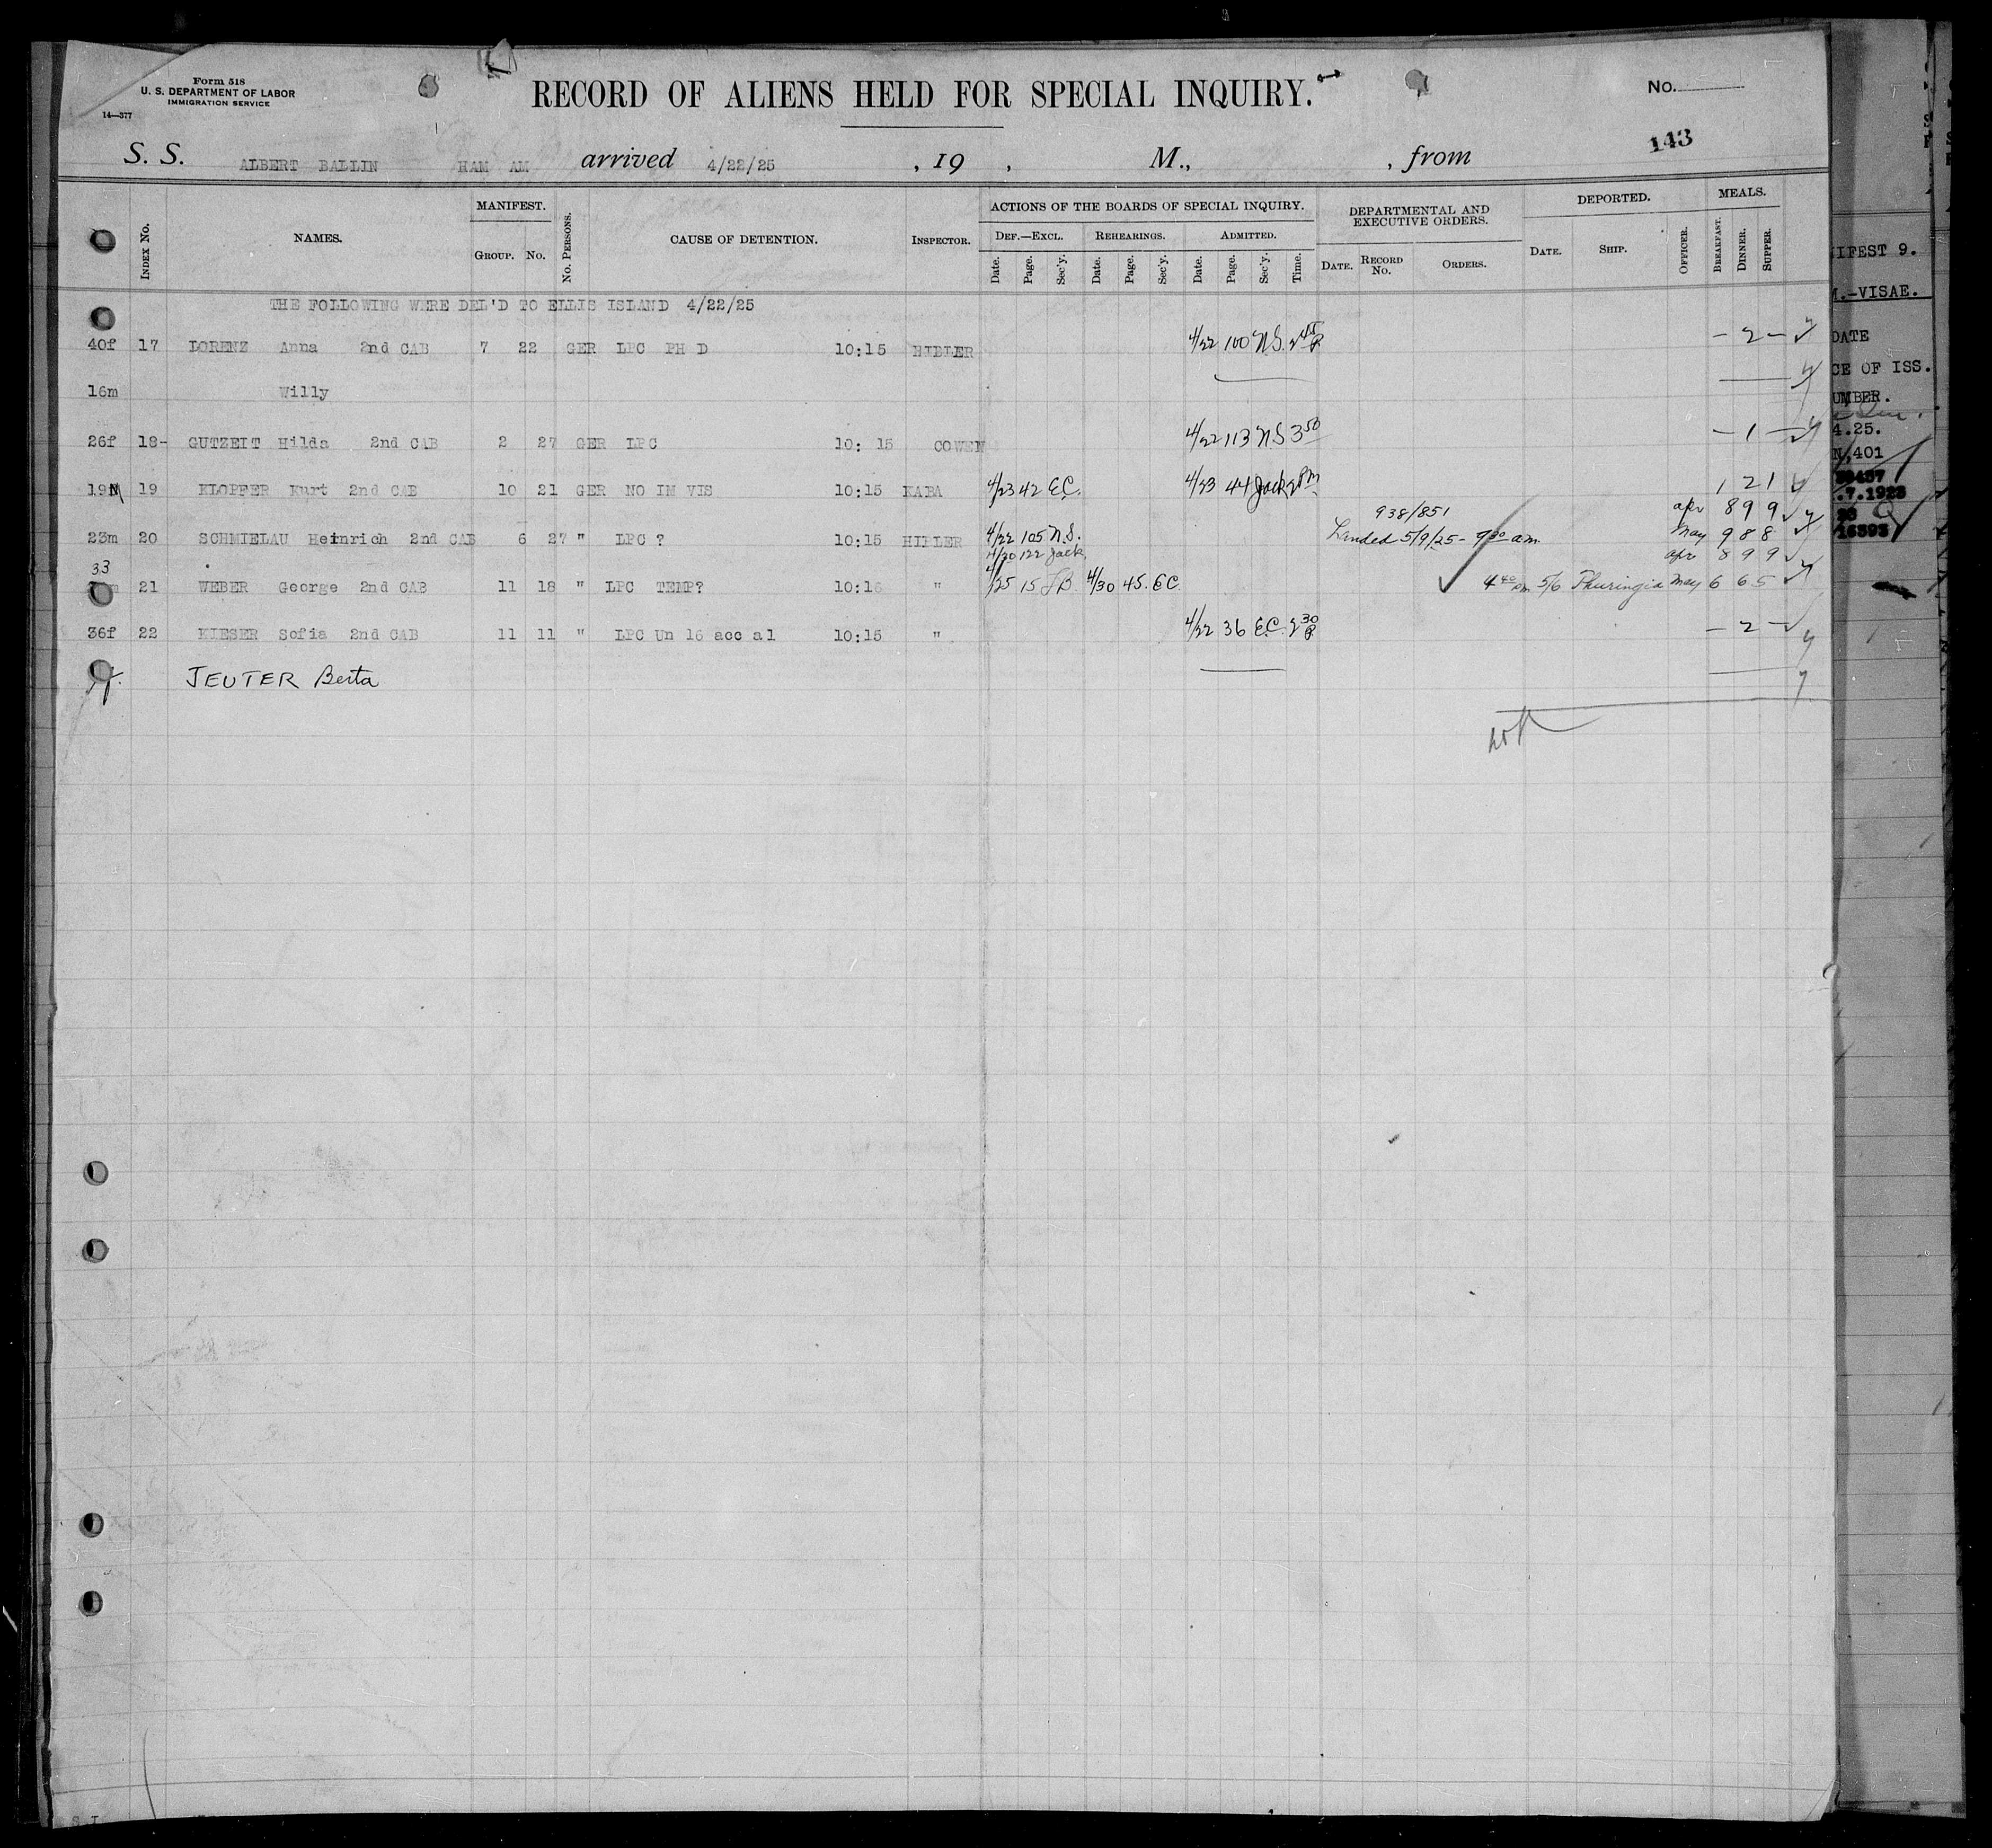 Form 518
U. S. DEPARTMENT OF LABOR
IMMIGRATION SERVICE
14—377
RECORD OF ALIENS HELD FOR SPECIAL INQUIRY.
No.
143
S. S. ALBERT BALLIN HAM AM arrived 4/22/25 , 19 , M., , from
INDEX No. NAMES. MANIFEST. GROUP. No. No. PERSONS. CAUSE OF DETENTION. INSPECTOR. ACTIONS OF THE BOARDS OF SPECIAL INQUIRY. DEPARTMENTAL AND EXECUTIVE ORDERS. DEPORTED. MEALS.
DEF.—EXCL. REHEARINGS. ADMITTED.
Date. Page. Sec'y. Date. Page. Sec'y. Date. Page. Sec'y. Time. DATE. RECORD No. ORDERS. DATE. SHIP. OFFICER. BREAKFAST. DINNER. SUPPER.
THE FOLLOWING WERE DEL'D TO ELLIS ISLAND 4/22/25
40f 17 LORENZ Anna 2nd CAB 7 22 GER LPC PH D 10:15 HIBLER 4/22 100 N.S. 2 45 P. — 2 —
16m Willy
26f 18- GUTZEIT Hilda 2nd CAB 2 27 GER LPC 10: 15 COWEN 4/22 113 N.S 3 50 — 1 —
19 19 KLOPFER Kurt 2nd CAB 10 21 GER NO IM VIS 10:15 KABA 4/23 42 E.C. 4/23 44 Jack 2 PM 1 2 1
938/851 apr 8 9 9
23m 20 SCHMIELAU Heinrich 2nd CAB 6 27 " LPC ? 10:15 HIBLER 4/22 105 N.S. Landed 5/9/25 - 9 30 a.m. May 9 8 8
4/30 122 Jack apr 8 9 9
33
21 WEBER George 2nd CAB 11 18 " LPC TEMP? 10:15 " 4/25 15 4/30 45. EC. 4 40 pm 5/6 Thuringia May 6 6 5
36f 22 KIESER Sofia 2nd CAB 11 11 " LPC Un 16 acc al 10:15 " 4/22 36 E.C. 2 30 P. — 2 —
JEUTER Berta
IFEST 9.
.-VISAE.
DATE
CE OF ISS.
UMBER.
4.25.
N,401
.7.1923
16393